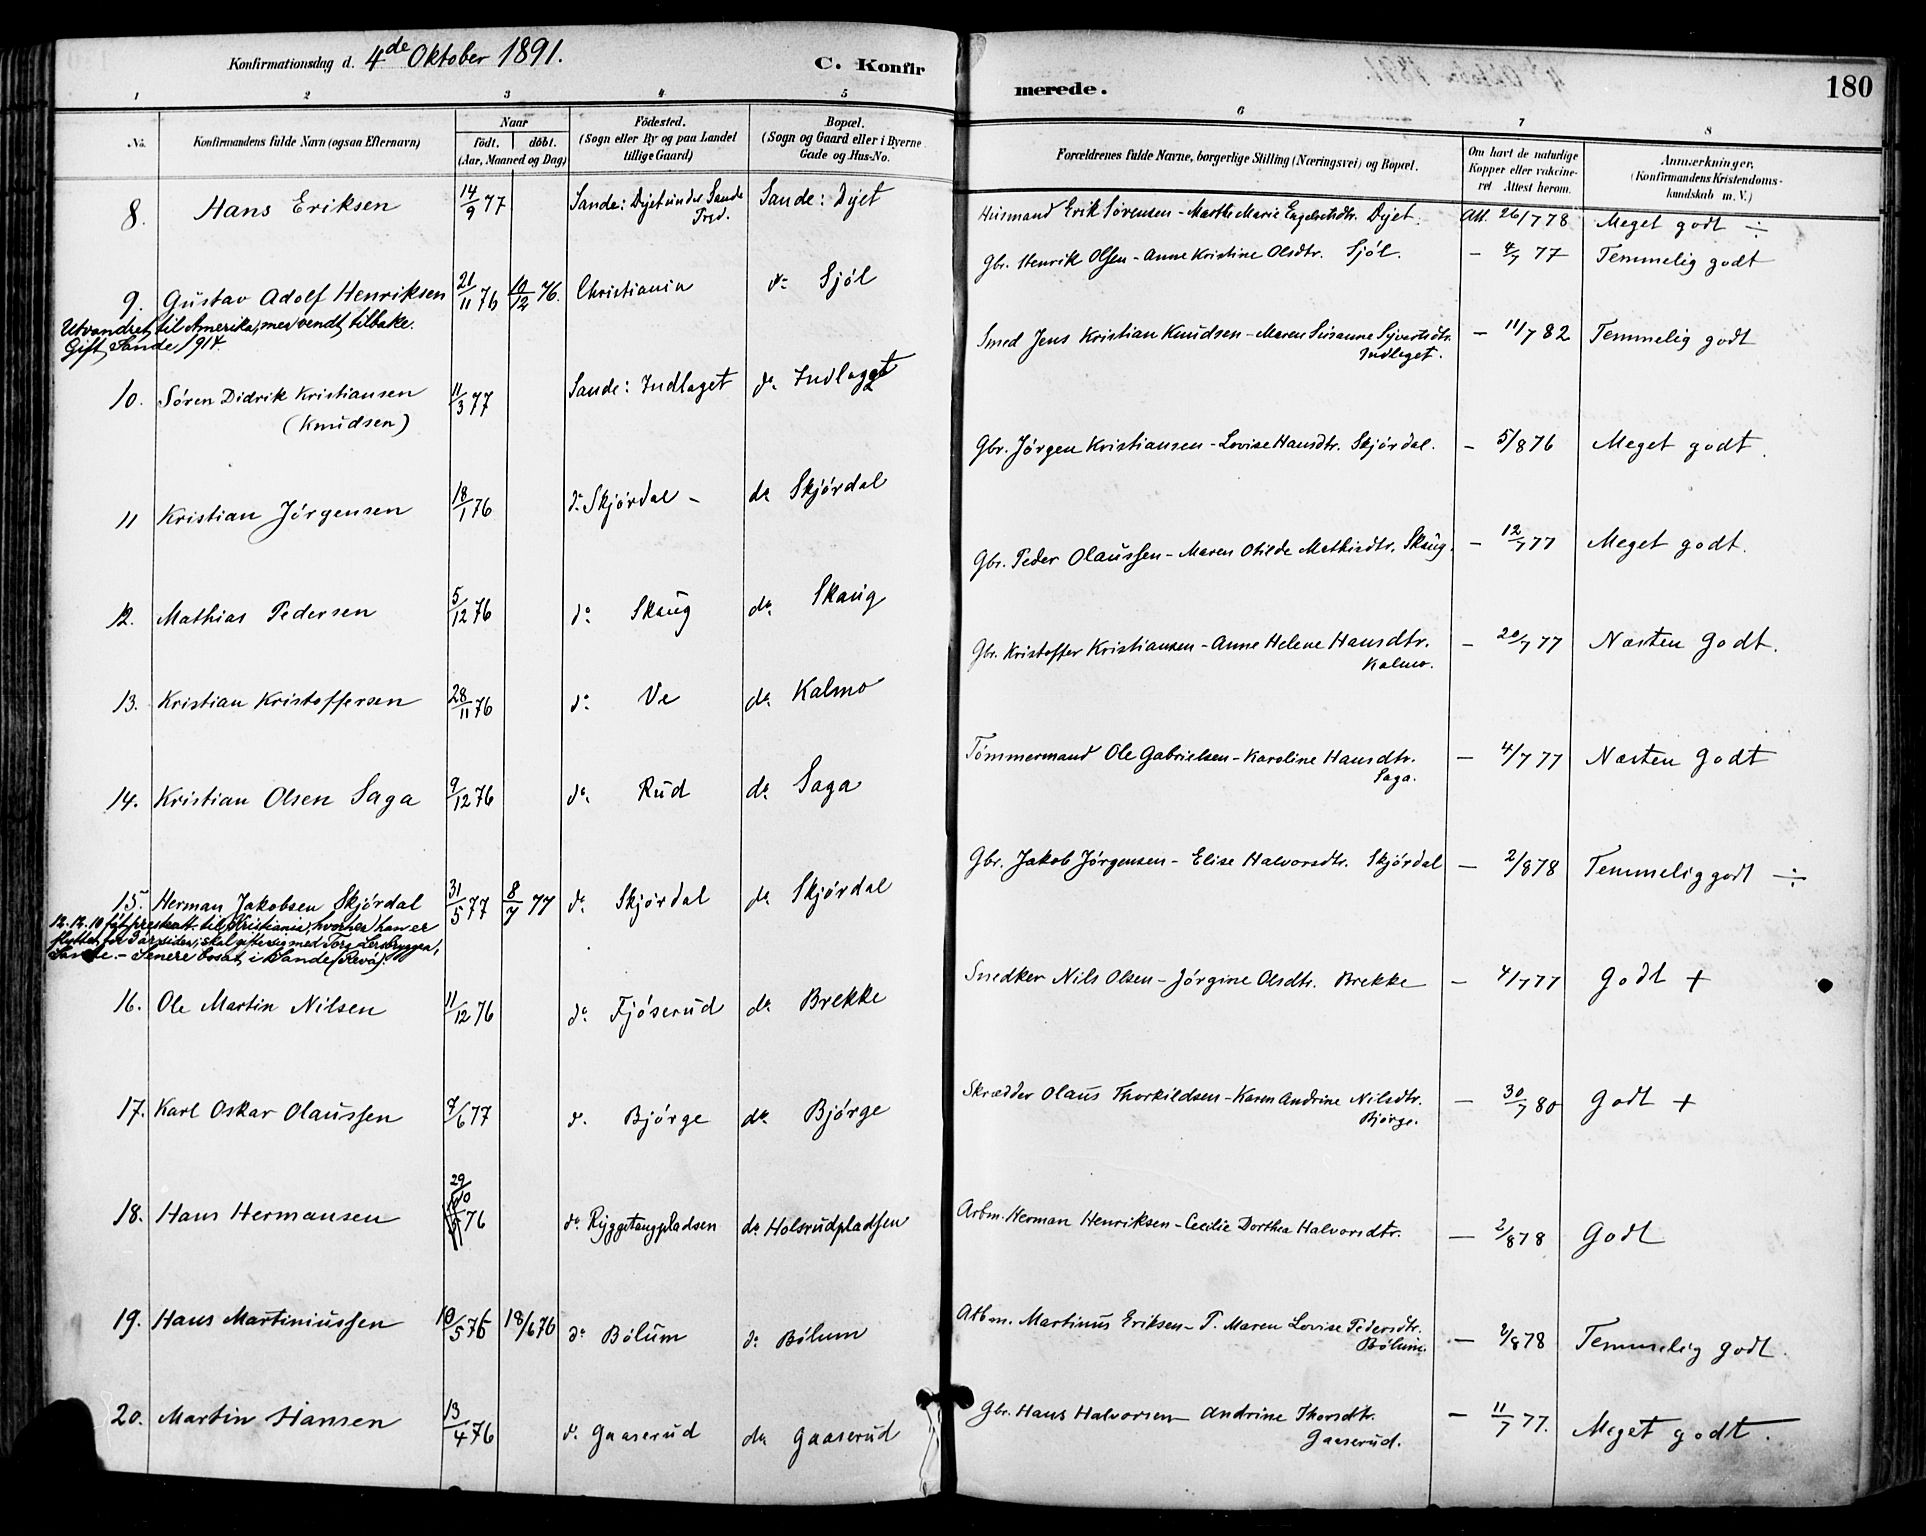 Konfirmationsdag d. 4de Oktober 1891.
C. Konfirmerede.
180
1 2 3 4 5 6 7 8
No. Konfirmandens fulde Navn (ogsaa Efternavn)
Naar født. døbt. (Aar, Maaned og Dag)
Fødested. (Sogn eller By og paa Landet tillige Gaard)
Bopæl. (Sogn og Gaard eller i Byerne Gade og Hus-No.
Forældrenes fulde Navne, borgerlige Stilling (Næringsvei) og Bopæl.
Om havt de naturlige Kopper eller vakcineret Attest herom.
Anmærkninger. (Konfirmandens Kristendomskundskab m. V.)
8. Hans Eriksen 14/9 77 Sande: Dyet under Sande Sande: Dyet Husmand Erik Sørensen - Marthe Marie Engebretsdtr. Dyet. Att. 26/7 78 Meget godt ÷
9. Gustav Adolf Henriksen 21/11 76 10/12 76. Christiania do Sjøl Gbr. Henrik Olsen - Anne Kristine Olsdtr. Sjøl. - 4/7 77 Temmelig godt
Utvandret til Amerika, men vendt tilbake.
Gift, Sande 1914.
10. Søren Didrik Kristiansen 11/3 77 Sande: Indlaget do Indlaget Smed Jens Kristian Knudsen - Maren Susanne Syvertsdtr. - 11/7 82 Temmelig godt
(Knudsen) Indlaget.
11 Kristian Jørgensen 18/1 76 do Skjørdal - do Skjørdal Gbr. Jørgen Kristiansen - Lovise Hansdtr. Skjørdal. - 5/8 76 Meget godt.
12. Mathias Pedersen 5/12 76 do Skaug do Skaug Gbr. Peder Olaussen - Maren Otilde Mathisdtr. Skaug. - 12/7 77 Meget godt.
13. Kristian Kristoffersen 28/11 76 do Ve do Kalmo Gbr. Kristoffer Kristiansen - Anne Helene Hansdtr. - 20/7 77 Næsten Godt.
Kalmo.
14. Kristian Olsen Saga 9/12 76 do Rud do Saga Tømmermand Ole Gabrielsen - Karoline Hansdtr. - 4/7 77 Næsten Godt
Saga.
15. Herman Jakobsen Skjørdal 31/5 77 8/7 77 do Skjørdal do Skjørdal Gbr. Jakob Jørgensen - Elise Halvorsdtr. Skjørdal - 2/8 78 Temmelig godt ÷
12.12.10 til Kristiania, hvorhen han er
flyttet for siden; skal gifte sig med
Sande. - Senere bosat i Sande (Revå).
16. Ole Martin Nilsen 11/12 76 do Fjøserud do Brekke Snedker Nils Olsen - Jørgine Olsdtr. Brekke - 4/7 77 Godt +
17. Karl Oskar Olaussen /6 77 do Bjørge do Bjørge Skrædder Olaus Thorkildsen - Karen Andrine Nilsdtr. - 30/7 80 Godt +
Bjørge.
18. Hans Hermansen 29/10 76 do Ryggetangpladsen do Holsrudpladsen Arbm. Herman Henriksen - Cecilie Dorthea Halvorsdtr. - 2/8 78 Godt
19. Hans Martiniussen 10/5 76 18/6 76 do Bølum do Bølum Arbm. Martinus Eriksen - P. Maren Lovise Pedersdtr. - 2/8 78 Temmelig godt.
Bølum.
20. Martin Hansen 13/4 76 do Gaaserud do Gaaserud Gbr. Hans Halvorsen - Andrine Thorsdtr. - 11/7 77. Meget godt.
Gaaserud.